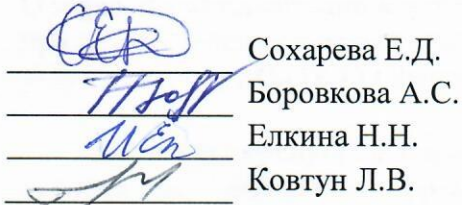 Сохарева Е.Д.
Боровкова А.С.
Елкина Н.Н.
Ковтун Л.В.